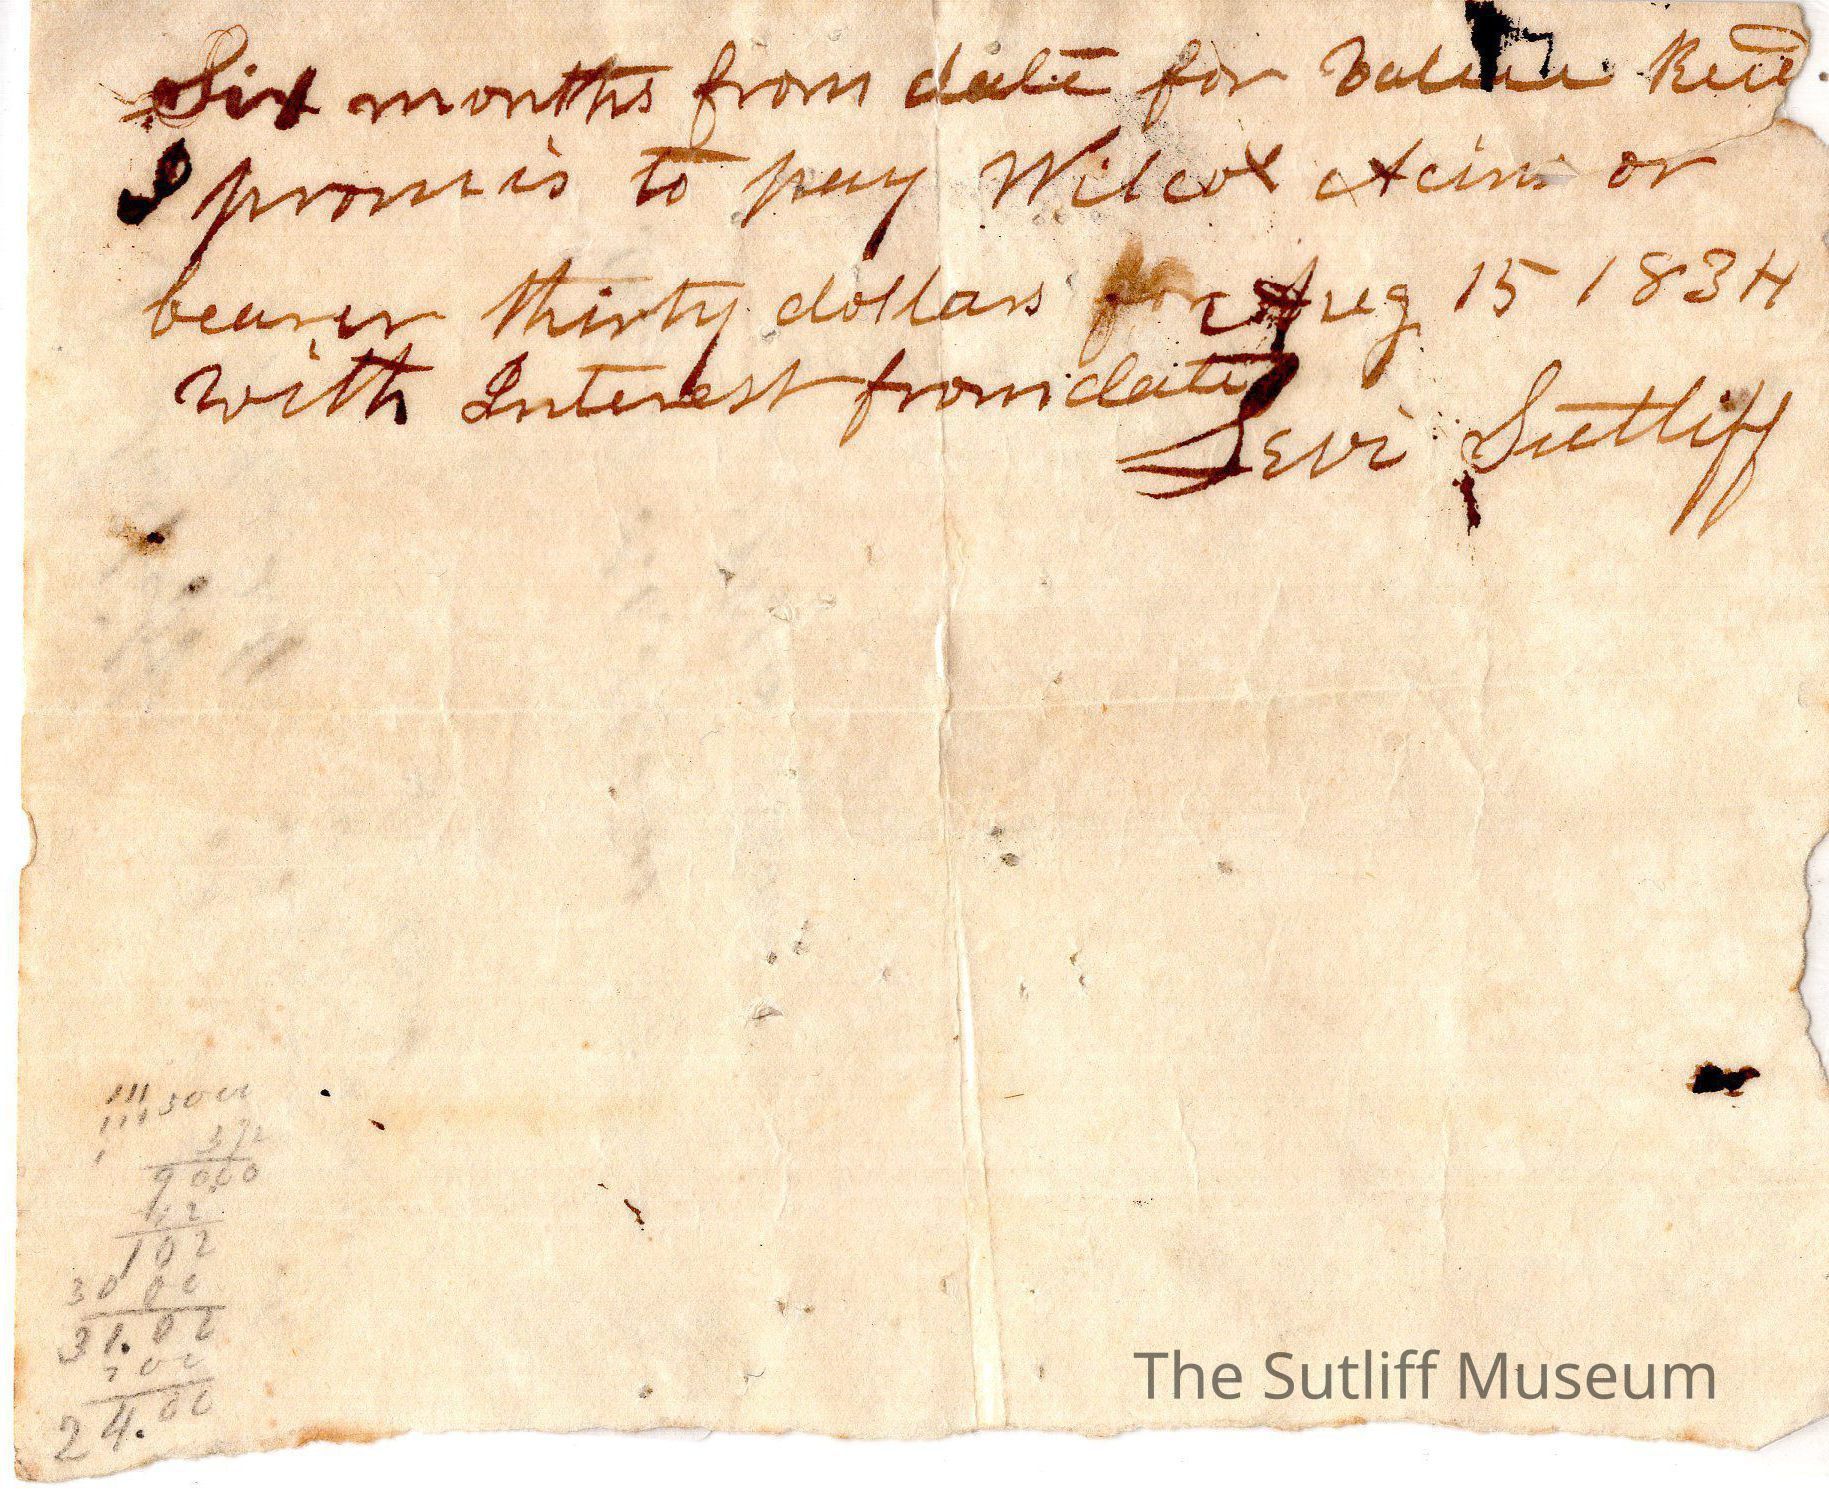 Six months from date for Value Recd.
I promis to pay Wilcox Akins or
bearer thirty dollars for Aug 15 1834
with Interest from date
Levi Sutliff
9000
42
102
30 00
31.02
24.00
The Sutliff Museum